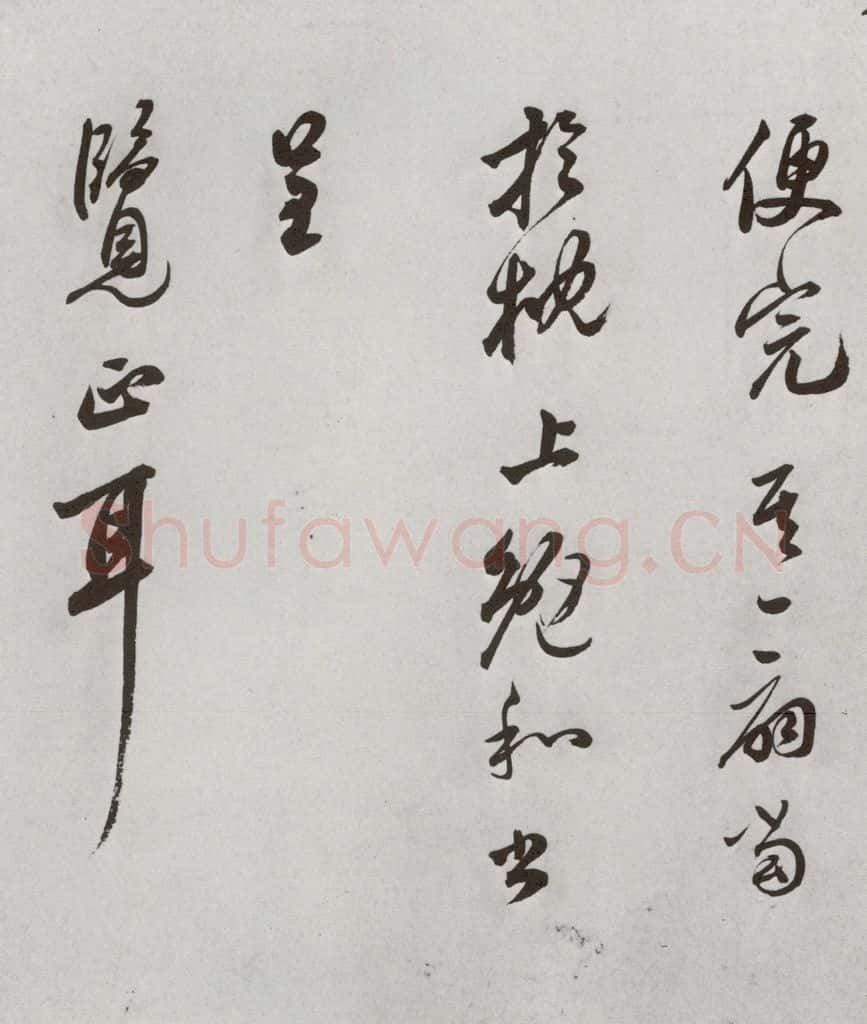 便完其二扇當
於枕上勉和出
呈
覽正耳
Shufawang.CN